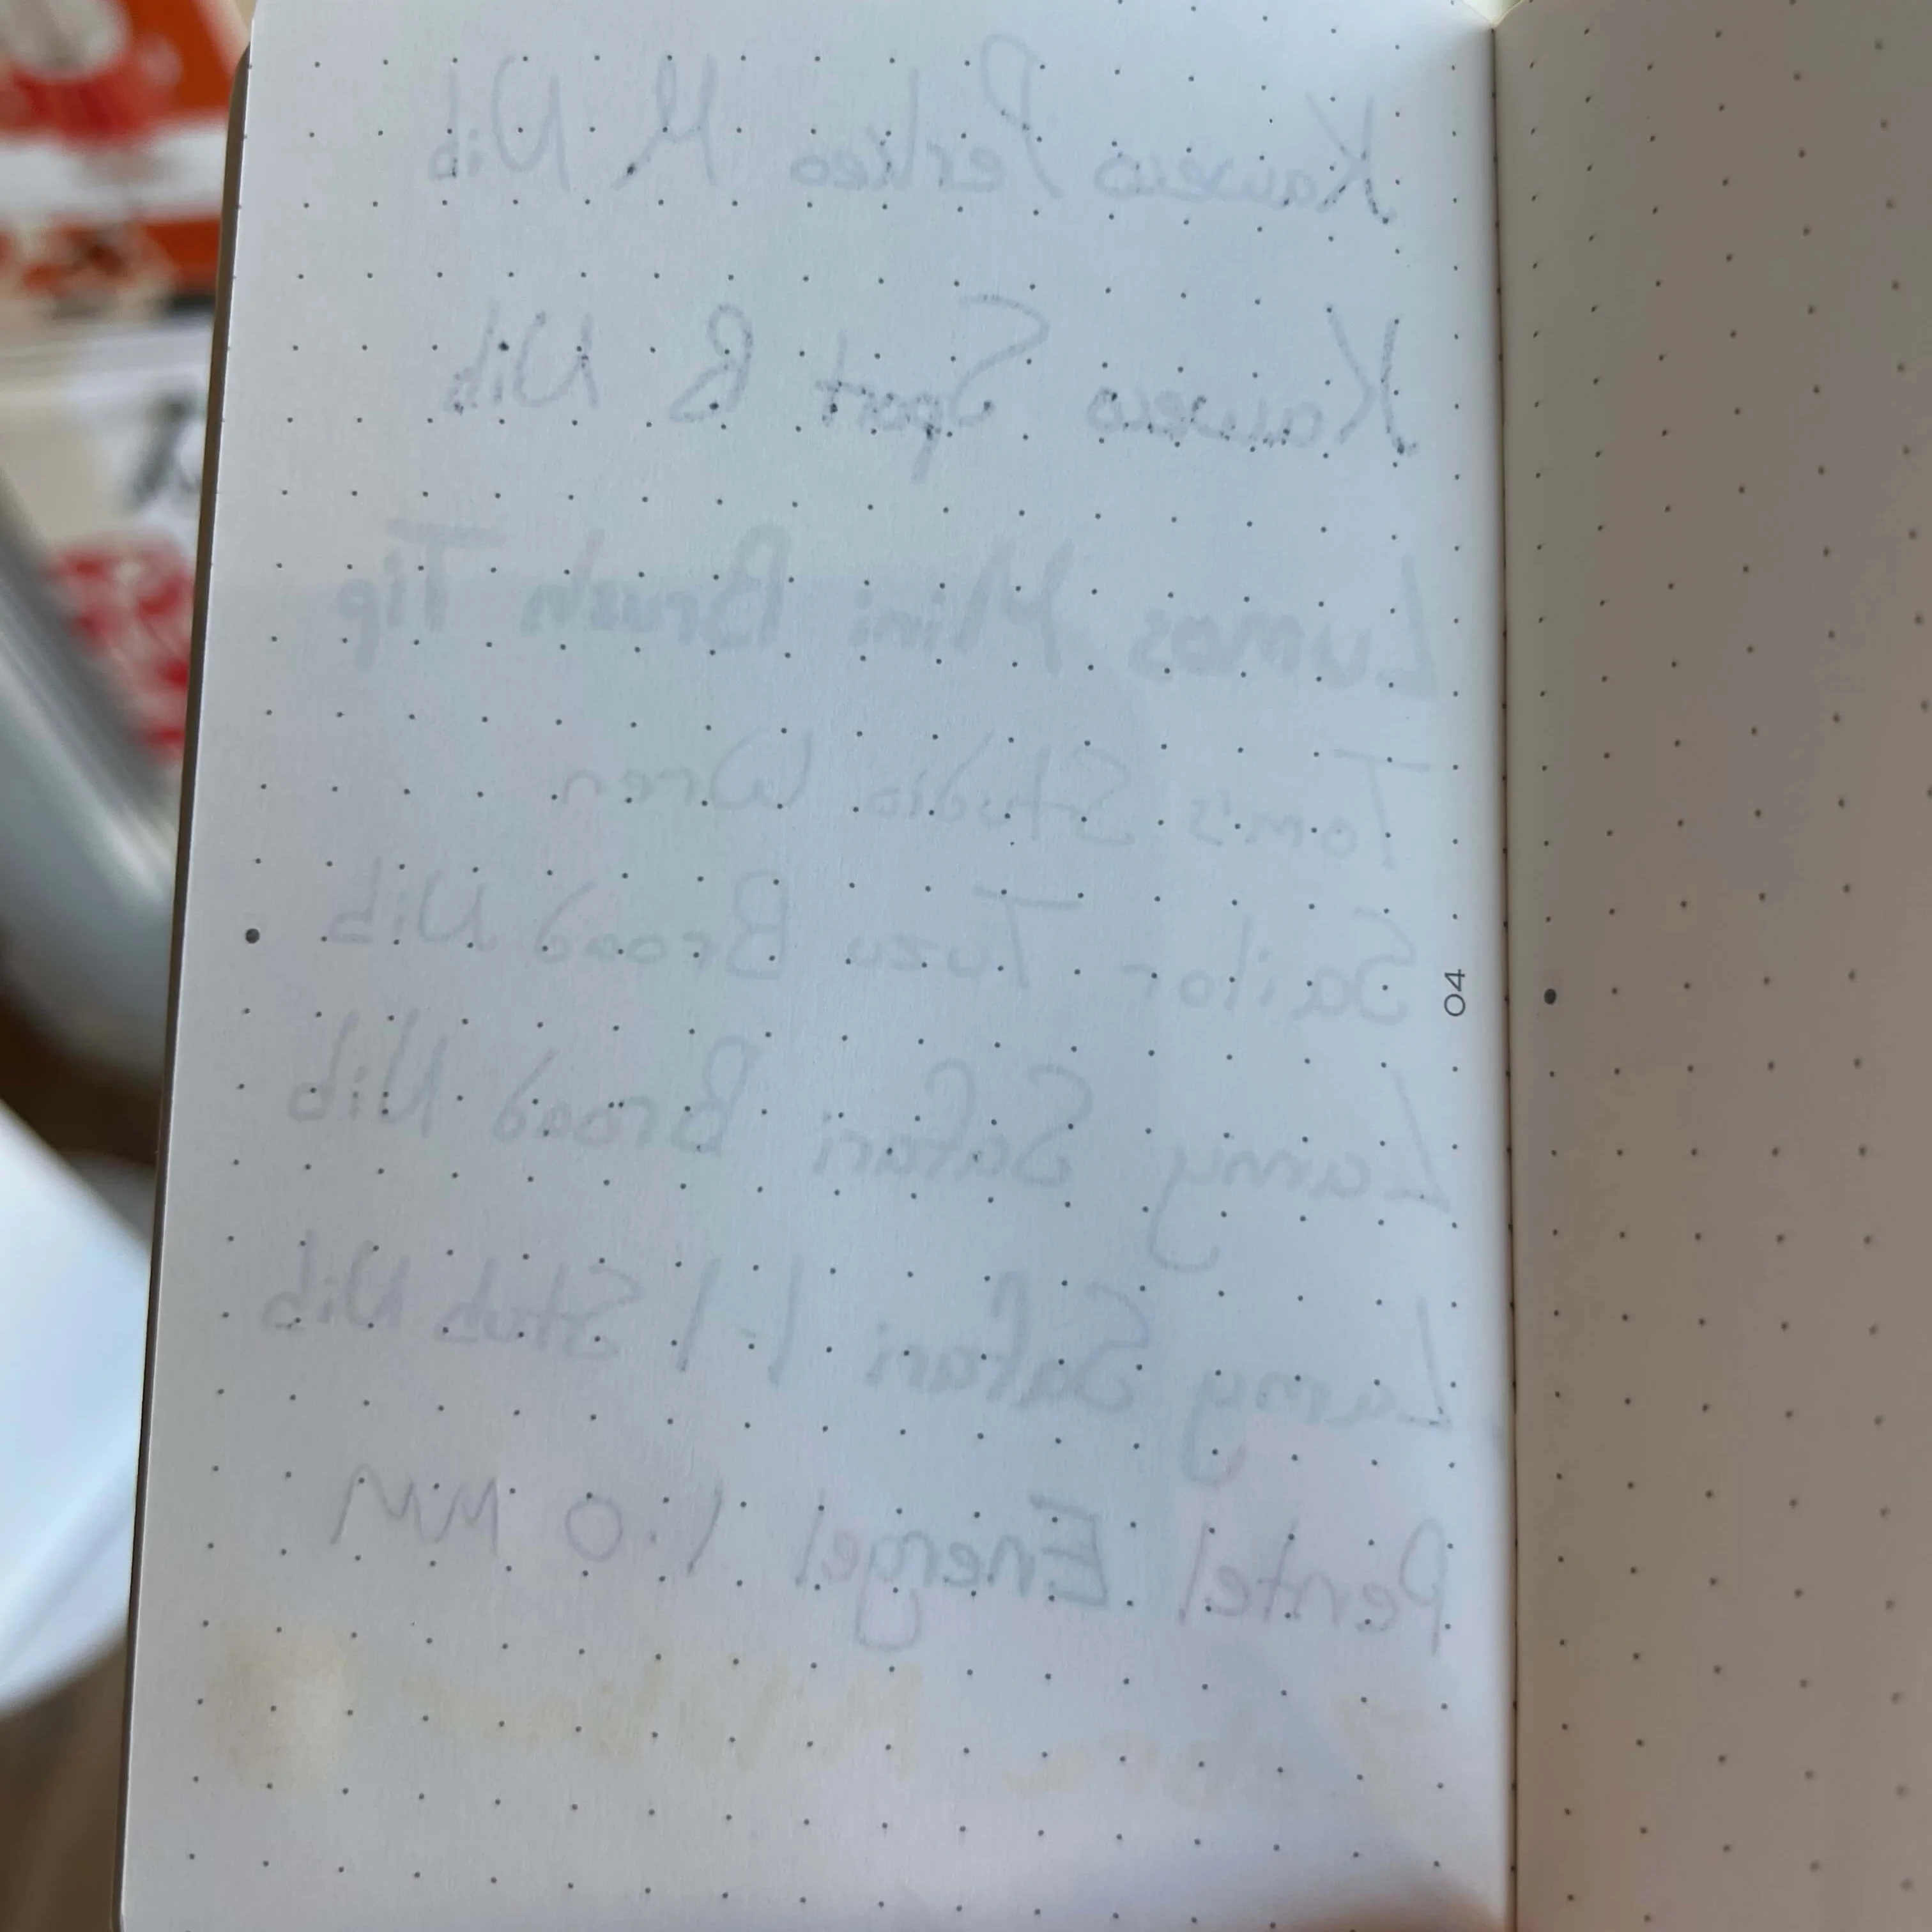 Kaweco Perkeo M Nib
Kaweco Sport B Nib
Lumos Mini Brush Tip
Tom's Studio Wren
Sailor Tuzu Broad Nib
Lamy Safari Broad Nib
Lamy Safari 1.1 Stub Nib
Pentel Energel 1.0 MM
Zebra Mildliner
04